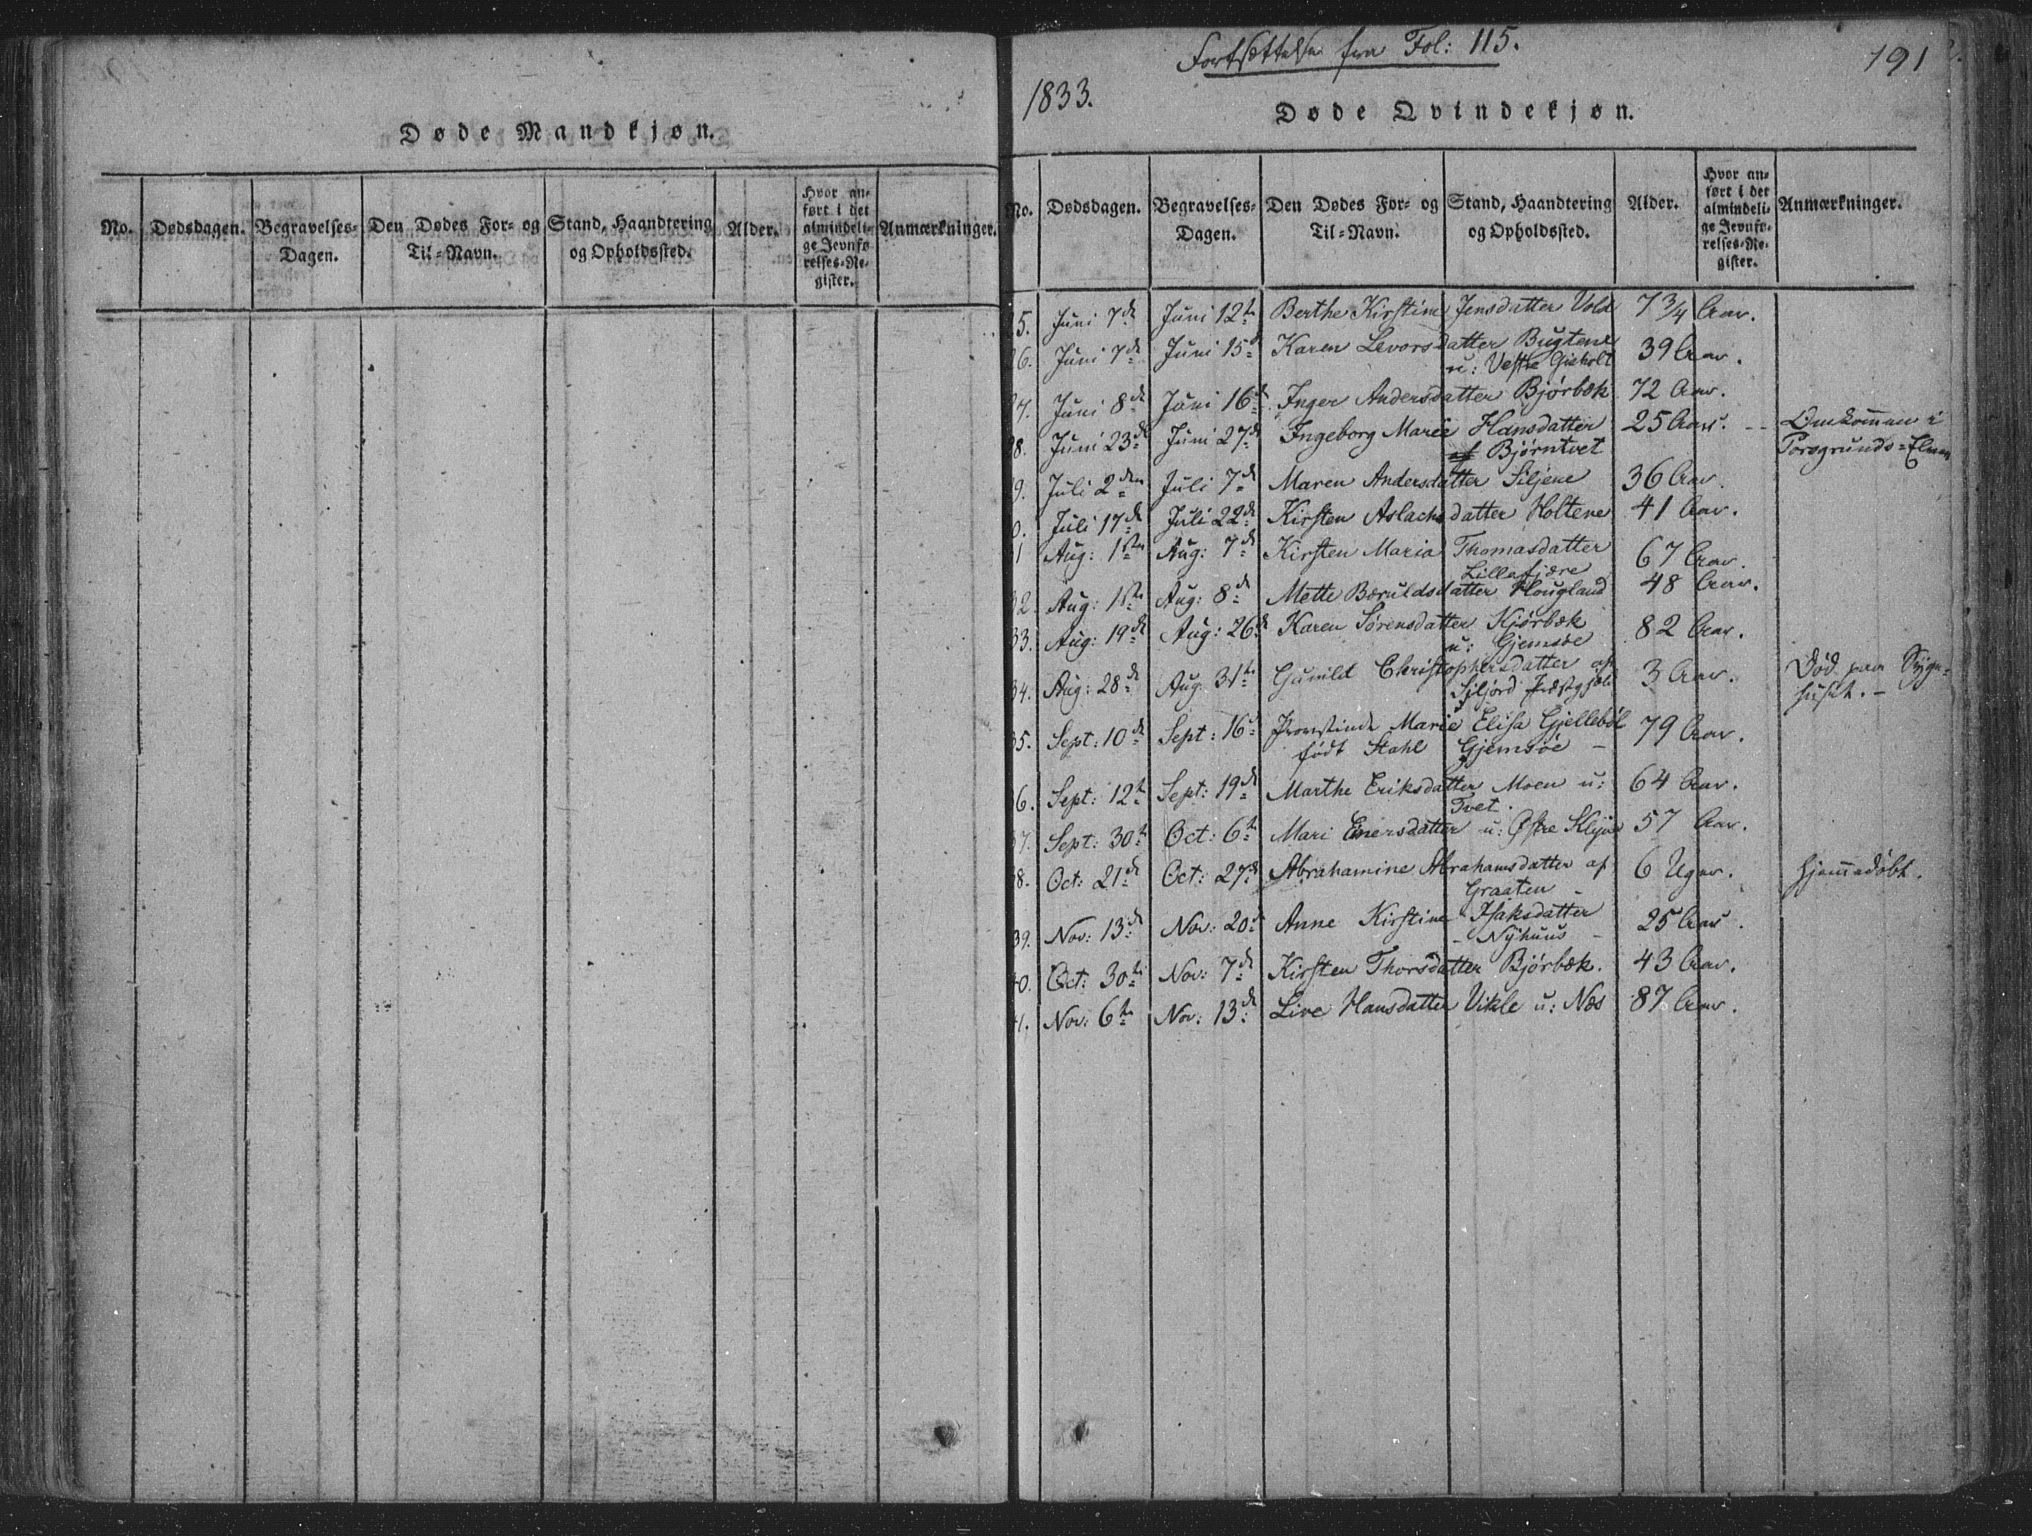 Døde Mandkjøn.
No. Dødsdagen. Begravelses-Dagen. Den Dødes For- og Til-Navn. Stand, Haandtering og Opholdssted. Alder. Hvor anført i det almindelige Jevnførelses-Register. Anmærkninger.
Fortsættelse fra Fol: 115.
191
1833.
Døde Qvindekjøn.
No. Dødsdagen. Begravelses-Dagen. Den Dødes For- og Til-Navn. Stand, Haandtering og Opholdssted. Alder. Hvor anført i det almindelige Jevnførelses-Register. Anmærkninger.
5. Juni 7de Juni 12te Berthe Kirstine Jensdatter Vold 7 3/4 Aar.
6. Juni 7de Juni 15de Karen Levorsdatter Bugtene 39 Aar.
u: Vestre Gieholt
7. Juni 8de Juni 16de Inger Andersdatter Bjørbæk 72 Aar.
8. Juni 23de Juni 27de Ingeborg Marie Hansdatter 25 Aar. Omkommen i
af Bjørntvet Porsgrunds-Elven
9. Juli 2den Juli 7de Maren Andersdatter Siljene 36 Aar.
0. Juli 17de Juli 22de Kirsten Aslachsdatter Holtene 41 Aar.
1 Aug: 1ste Aug: 7de Kirsten Maria Thomasdatter 67 Aar.
Lillefjære
2. Aug: 1ste Aug: 8de Mette Bæruldsdatter Hougland 48 Aar.
33. Aug: 19de Aug: 26de Karen Sørensdatter Kjørbæk 82 Aar.
u: Gjemsøe
34. Aug: 28de Aug. 31te Gunild Christophersdatter af 3 Aar. Død paa Syge-
Siljord Præstgjæld huset. -
35. Sept: 10de Sept: 16de Provstinde Marie Elisa Gjellebøl 79 Aar.
født Stahl Gjemsøe -
6. Sept: 12te Sept: 19de Marthe Eriksdatter Moen u: 64 Aar.
Tvet.
37. Sept: 30te Oct: 6te Mari Enersdatter u: Østre Klyve 57 Aar.
8. Oct: 21de Oct: 27de Abrahamine Abrahamsdatter af 6 Uger. hjemmedøbt.
Graaten -
39. Nov: 13de Nov: 20de Anne Kirstine Isaksdatter 25 Aar.
- Nyhuus -
40. Oct: 30te Nov: 7de Kirsten Thorsdatter Bjørbæk. 43 Aar.
1. Nov: 6te Nov: 13de Live Hansdatter Vikle u: Næs 87 Aar.